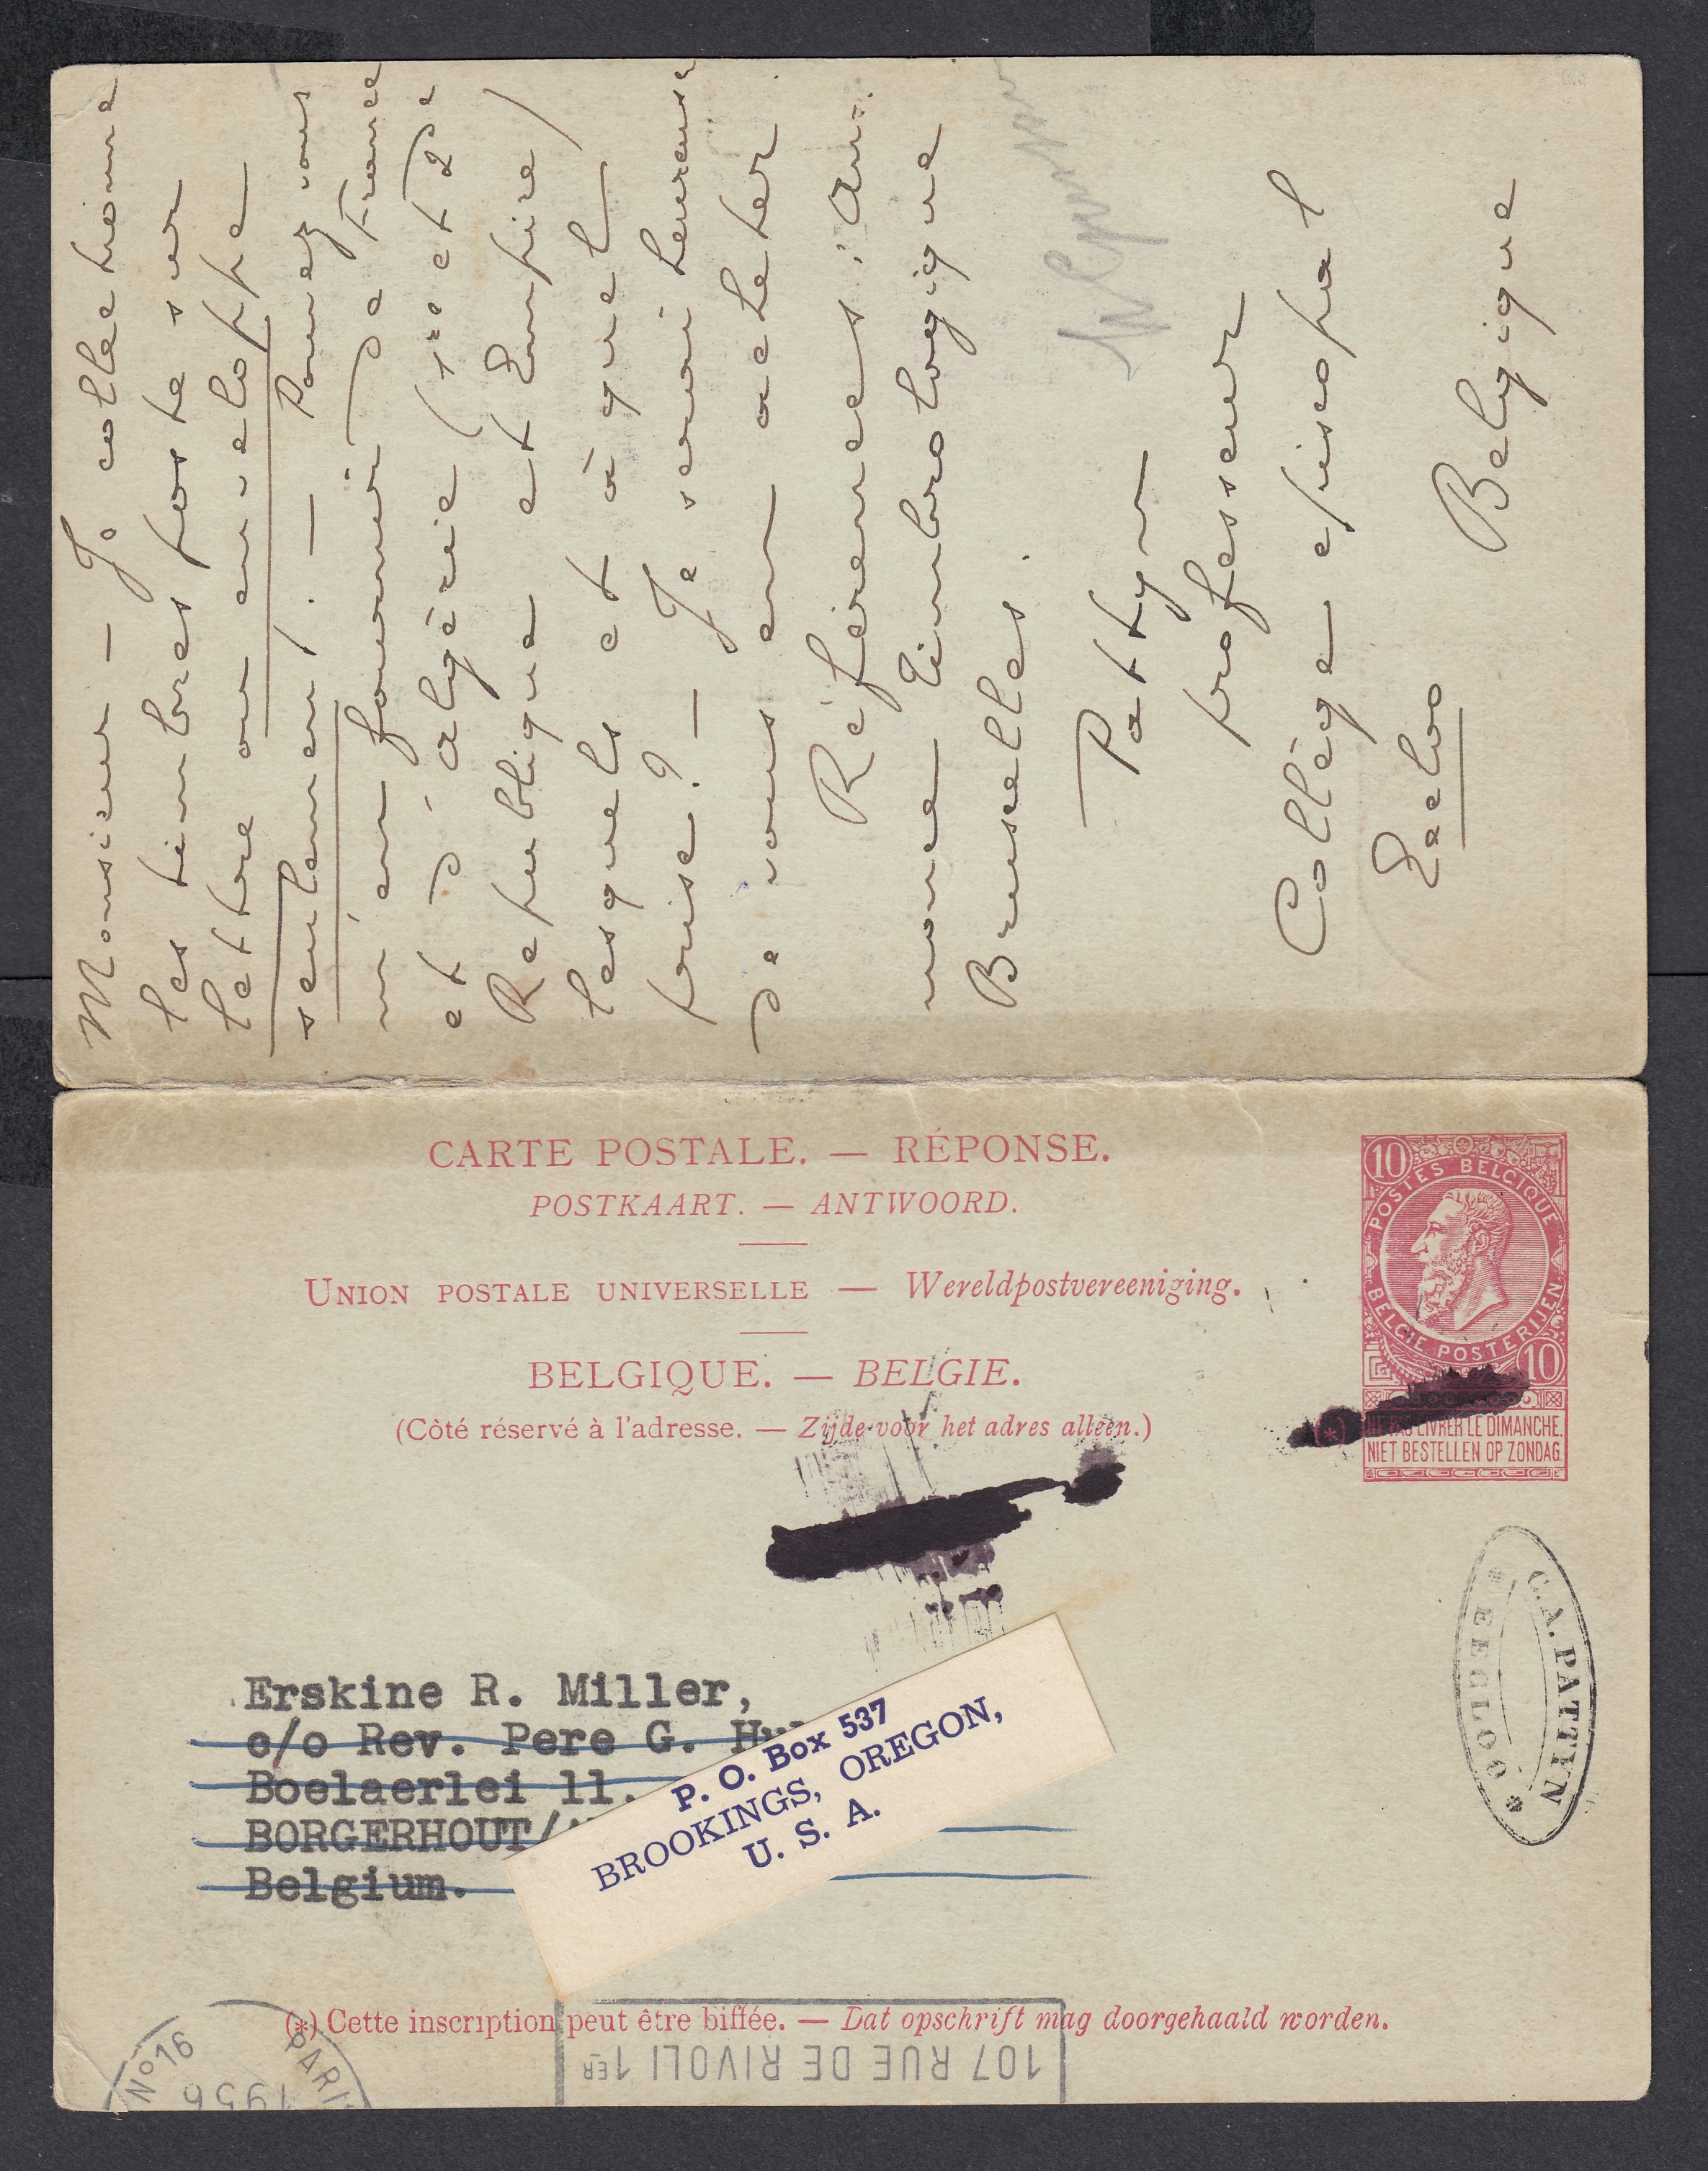 Monsieur — Je collectionne
les timbres poste sur
lettre ou enveloppe
seulement. — Pouvez vous
m'en fournir de France
et d'Algérie (1re et 2de
République et Empire)
lesquels et à quel
prise? — Je serai heureux
de vous en acheter.
Références: An-
nonce Timbrologique
Bruxelles.
Pattyn
professeur
Collège episcopal
Eecloo
Belgique
CARTE POSTALE. — RÉPONSE.
POSTKAART. — ANTWOORD.
UNION POSTALE UNIVERSELLE — Wereldpostvereeniging.
BELGIQUE. — BELGIE.
(Côté réservé à l'adresse. — Zijde voor het adres alleen.)
10
POSTES BELGIQUE
BELGIE POSTERIJEN
10
(*) LIVRER LE DIMANCHE.
NIET BESTELLEN OP ZONDAG
C.A. PATTYN
* EECLOO *
Erskine R. Miller,
c/o Rev. Pere G.
Boelaerlei 11.
BORGERHOUT/
Belgium.
P. O. Box 537
BROOKINGS, OREGON,
U. S. A.
(*) Cette inscription peut être biffée. — Dat opschrift mag doorgehaald worden.
107 RUE DE RIVOLI 1ER
PARI
No 16
1956